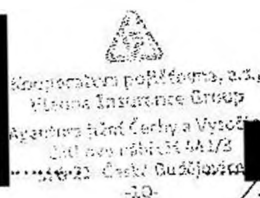 Kooperativa pojišťovna, a.s.,
Vienna Insurance Group
Agentura jižní Čechy a Vysočina
441/3
České Budějovice
-10-